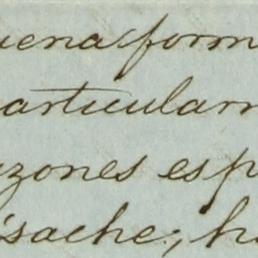 uena form
articularm
zones esp
isache, h